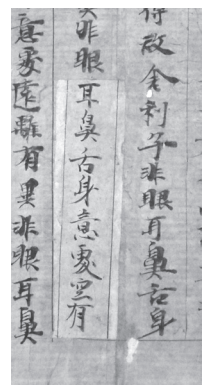 得故舍利子非眼耳鼻舌身
非眼耳鼻舌身意處空有
意處遠離有異非眼耳鼻